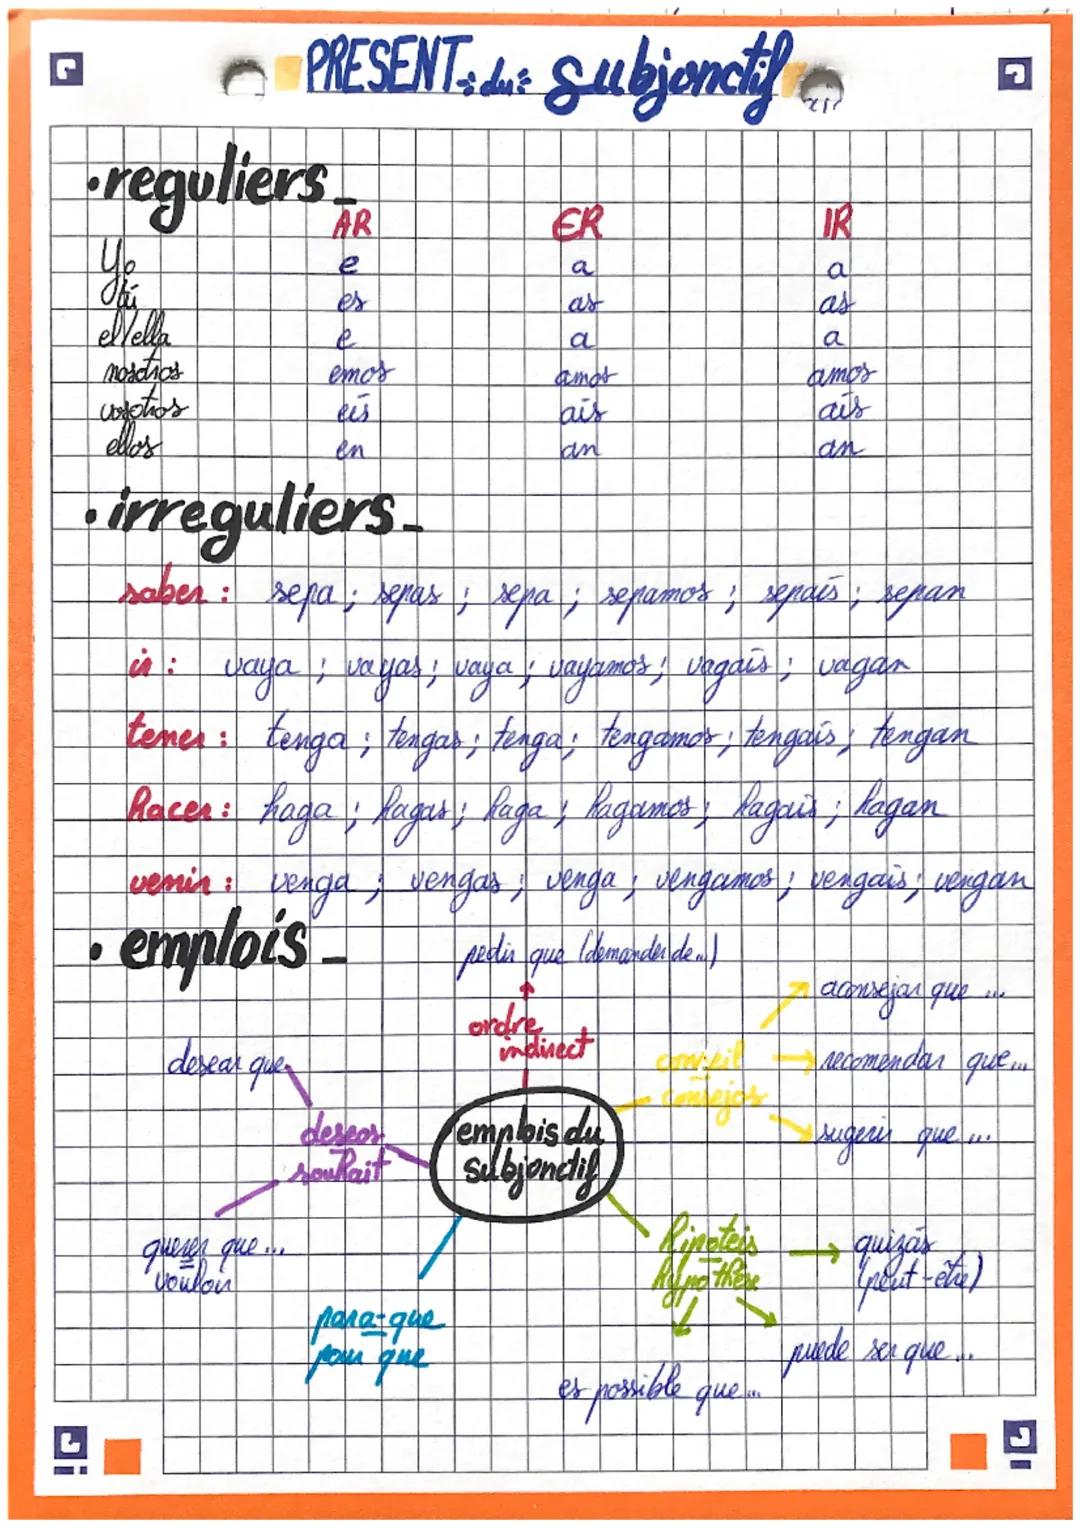 PRESENT du Subjonctif
• reguliers_
AR ER IR
Yo e a a
tú es as as
el/ella e a a
nosotros emos amos amos
vosotros eís aís aís
ellos en an an
• irreguliers_
saber : sepa ; sepas ; sepa ; sepamos ; sepaís ; sepan
ir : vaya ; vayas ; vaya ; vayamos ; vagaís ; vagan
tener : tenga ; tengas ; tenga ; tengamos ; tengaís ; tengan
hacer : haga ; hagas ; haga ; hagamos ; hagaís ; hagan
venir : venga ; vengas ; venga ; vengamos ; vengaís ; vengan
• emplois_
pedir que (demander de...)
ordre
indirect
aconsejar que ...
conseil
consejos
recomendar que...
sugerir que ...
desear que
deseos
souhait
querer que ...
vouloir
emplois du
subjonctif
para-que
pour que
hipoteis
hypothèse
quizás
(peut-être)
puede ser que ...
es possible que ...